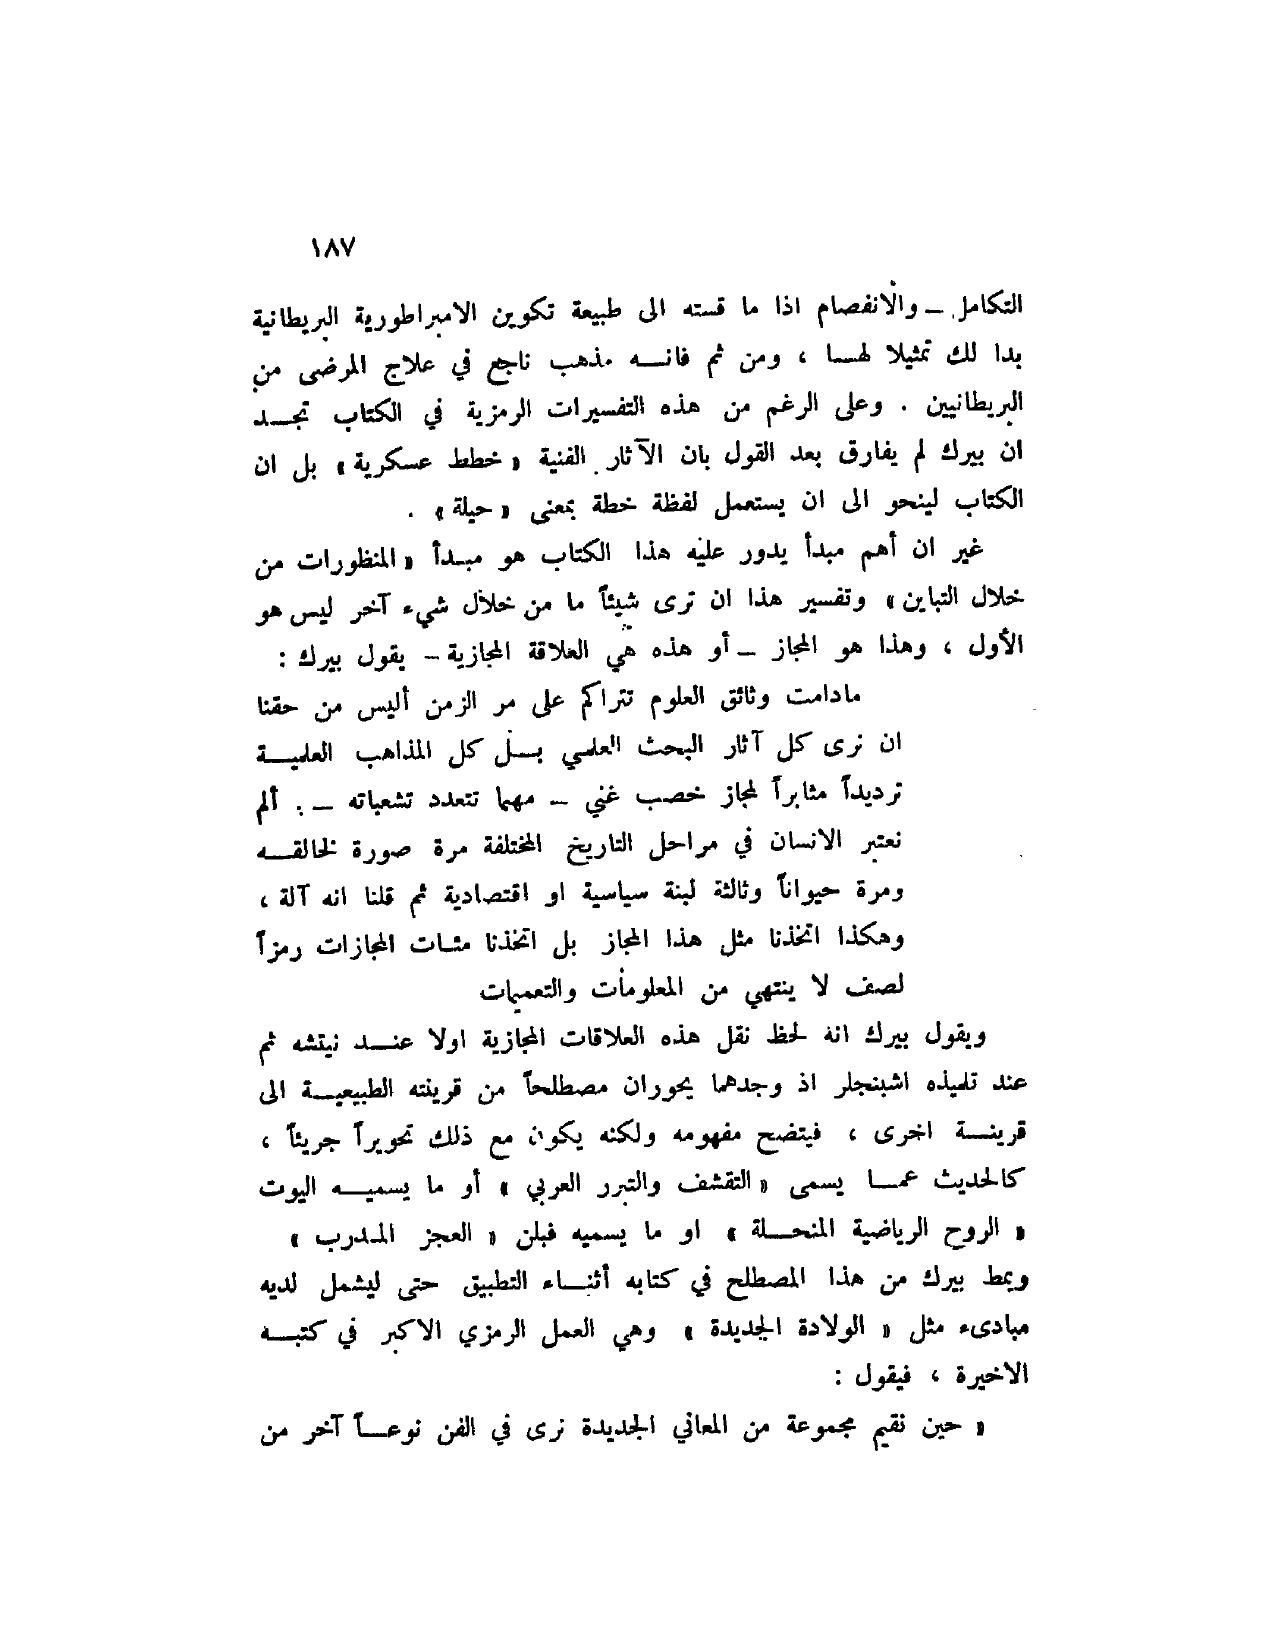 ١٨٧
التكامل ـ والانفصام اذا ما قسته الى طبيعة تكوين الامبراطورية البريطانية
بدا لك تمثيلا لهما ، ومن ثم فانه مذهب ناجع في علاج المرضى من
البريطانيين . وعلى الرغم من هذه التفسيرات الرمزية في الكتاب تجد
ان بيرك لم يفارق بعد القول بان الآثار الفنية « خطط عسكرية » بل ان
الكتاب لينحو الى ان يستعمل لفظة خطة بمعنى « حيلة » .
غير ان أهم مبدأ يدور عليه هذا الكتاب هو مبدأ « المنظورات من
خلال التباين » وتفسير هذا ان ترى شيئاً ما من خلال شيء آخر ليس هو
الأول ، وهذا هو المجاز ـ أو هذه هي العلاقة المجازية ـ يقول بيرك :
مادامت وثائق العلوم تتراكم على مر الزمن أليس من حقنا
ان نرى كل آثار البحث العلمي بل كل المذاهب العلمية
ترديداً مثابراً لمجاز خصب غني ـ مهما تتعدد تشعباته ـ . ألم
نعتبر الانسان في مراحل التاريخ المختلفة مرة صورة لخالقه
ومرة حيواناً وثالثة لبنة سياسية او اقتصادية ثم قلنا انه آلة ،
وهكذا اتخذنا مثل هذا المجاز بل اتخذنا مئات المجازات رمزاً
لصف لا ينتهي من المعلومات والتعميات
ويقول بيرك انه لحظ نقل هذه العلاقات المجازية اولا عند نيتشه ثم
عند تلميذه اشبنجلر اذ وجدهما يحوران مصطلحاً من قرينته الطبيعية الى
قرينة اخرى ، فيتضح مفهومه ولكنه يكون مع ذلك تحويراً جريئاً ،
كالحديث عما يسمى « التقشف والتبرر العربي » أو ما يسميه اليوت
« الروح الرياضية المنحلة » او ما يسميه فبلن « العجز المدرب »
ويمط بيرك من هذا المصطلح في كتابه أثناء التطبيق حتى ليشمل لديه
مبادىء مثل « الولادة الجديدة » وهي العمل الرمزي الاكبر في كتبه
الاخيرة ، فيقول :
« حين نقيم مجموعة من المعاني الجديدة نرى في الفن نوعاً آخر من